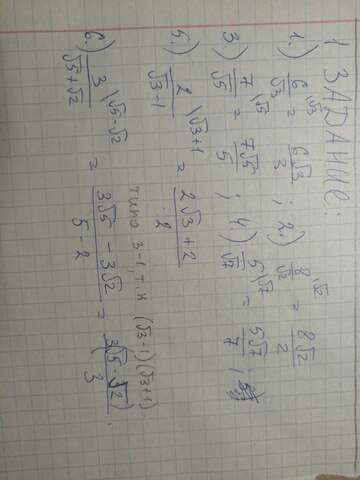 1 ЗАДАНИЕ:
1.) 6/√3 \√3 = 6√3/3 ; 2.) 8/√2 \√2 = 8√2/2
3.) 7/√5 \√5 = 7√5/5 ; 4.) 5/√7 \√7 = 5√7/7 ;
5.) 2/√3-1 \√3+1 = 2√3+2/2
типо 3-1, т.к (√3-1)(√3+1)
6.) 3/√5+√2 \√5-√2 = 3√5-3√2/5-2 = 3(√5-√2)/3.